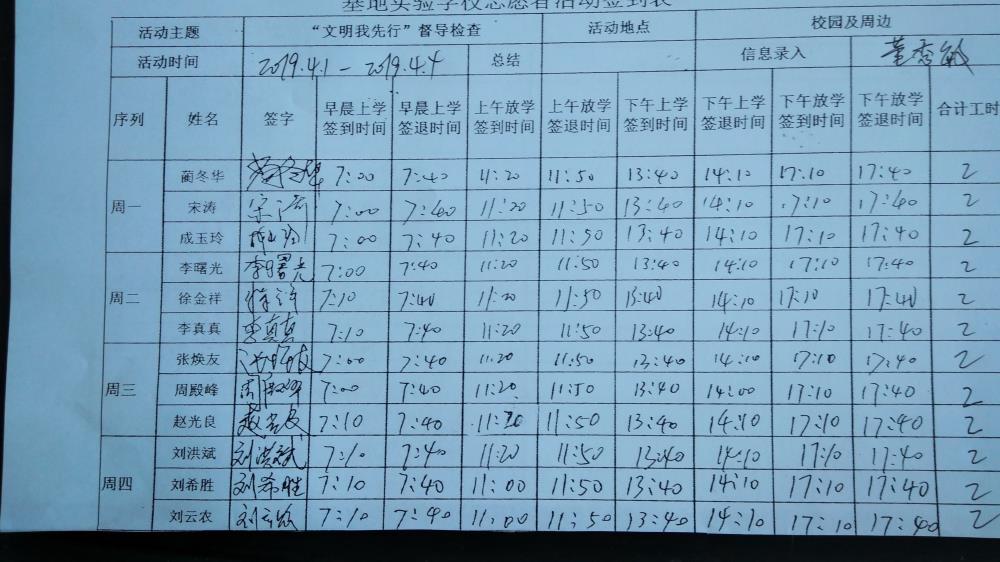 基地实验学校志愿者活动签到表
活动主题 “文明我先行”督导检查 活动地点 校园及周边
活动时间 2019.4.1—2019.4.4 总结 信息录入 董秀敏
序列 姓名 签字 早晨上学签到时间 早晨上学签退时间 上午放学签到时间 上午放学签退时间 下午上学签到时间 下午上学签退时间 下午放学签到时间 下午放学签退时间 合计工时
周一 蔺冬华 蔺冬华 7:00 7:40 11:20 11:50 13:40 14:10 17:10 17:40 2
宋涛 宋涛 7:00 7:40 11:20 11:50 13:40 14:10 17:10 17:40 2
成玉玲 成玉玲 7:00 7:40 11:20 11:50 13:40 14:10 17:10 17:40 2
周二 李曙光 李曙光 7:00 7:40 11:20 11:50 13:40 14:10 17:10 17:40 2
徐金祥 7:10 7:40 11:20 11:50 13:40 14:10 17:10 17:40 2
李真真 李真真 7:10 7:40 11:20 11:50 13:40 14:10 17:10 17:40 2
周三 张焕友 7:00 7:40 11:20 11:50 13:40 14:10 17:10 17:40 2
周殿峰 周殿峰 7:00 7:40 11:20 11:50 13:40 14:00 17:10 17:40 2
赵光良 赵光良 7:10 7:40 11:20 11:50 13:40 14:10 17:10 17:40 2
周四 刘洪斌 刘洪斌 7:10 7:40 11:20 11:50 13:40 14:10 17:10 17:40 2
刘希胜 刘希胜 7:10 7:40 11:00 11:50 13:40 14:10 17:10 17:40 2
刘云农 刘云农 7:10 7:40 11:00 11:50 13:40 14:10 17:10 17:40 2